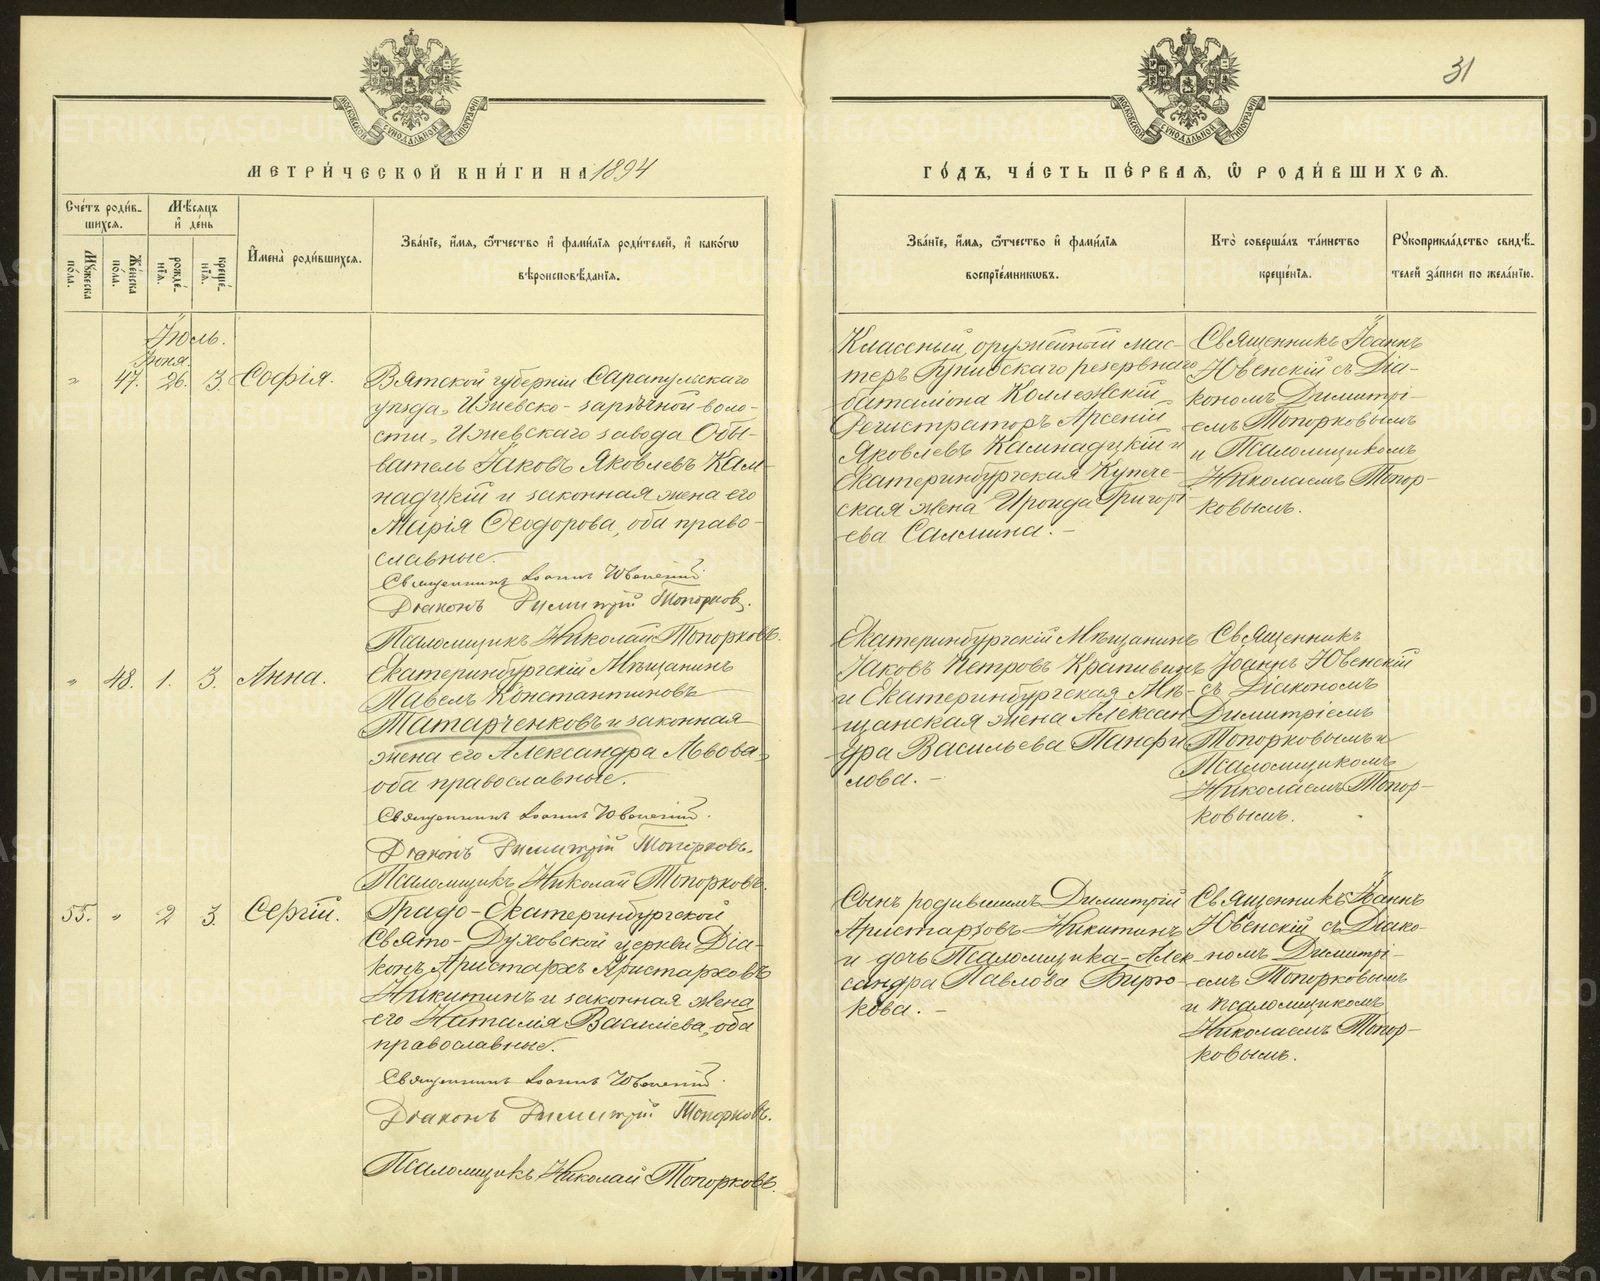 31
МОСКОВСКОЙ СѴНОДАЛЬНОЙ ТИПОГРАФІИ
МОСКОВСКОЙ СѴНОДАЛЬНОЙ ТИПОГРАФІИ
МЕТРИ́ЧЕСКОЙ КНИ́ГИ НА 1894
ГО́ДЪ, ЧА́СТЬ ПЕ́РВАЯ, Ѿ РОДИ́ВШИХСЯ.
Сче́тъ роди́в-
шихся.
Мѣ́сяцъ
и҆ де́нь
Му́жеска
по́ла.
Же́нска
по́ла.
рожде́-
нїя.
креще́-
нїя.
И҆мена̀ роди́вшихся.
Зва́нїе, и҆́мя, ѻ҆́тчество и҆ фами́лїя роди́телей, и҆ како́гѡ
вѣроисповѣ́данїя.
Зва́нїе, и҆́мя, ѻ҆́тчество и҆ фами́лїя
воспрїе́мникѡвъ.
Кто̀ соверша́лъ та́инство
креще́нїя.
Рꙋкоприкла́дство свидѣ́-
телей за́писи по жела́нїю.
Іюль.
Іюня
" 47. 26. 3. Софія.
Вятской губерніи Сарапульскаго
уѣзда, Ижевско-зарѣчной воло-
сти, Ижевскаго завода Обы-
ватель Іаковъ Яковлевъ Кам-
надцкій и законная жена его
Марія Ѳеодорова, оба право-
славные.
Священникъ Іоаннъ Ювенскій
Діаконъ Димитрій Топорковъ.
Псаломщикъ Николай Топорковъ.
Классный оружейный мас-
теръ Гунибскаго резервнаго
баталіона Коллежскій
Регистраторъ Арсеній
Яковлевъ Камнадцкій и
Екатеринбургская Купече-
ская жена Ироида Григорі-
ева Салмина. -
Священникъ Іоаннъ
Ювенскій съ Діа-
кономъ Димитрі-
емъ Топорковымъ
и Псаломщикомъ
Николаемъ Топор-
ковымъ.
" 48. 1. 3. Анна.
Екатеринбургскій Мѣщанинъ
Павелъ Константиновъ
Татарченковъ и законная
жена его Александра Львова,
оба православные.
Священникъ Іоаннъ Ювенскій.
Діаконъ Димитрій Топорковъ.
Псаломщикъ Николай Топорковъ.
Екатеринбургскій Мѣщанинъ
Іаковъ Петровъ Крапивинъ
и Екатеринбургская Мѣ-
щанская жена Алексан
дра Васильева Панфи
лова. -
Священникъ
Іоаннъ Ювенскій
съ Діакономъ
Димитріемъ
Топорковымъ и
Псаломщикомъ
Николаемъ Топор-
ковымъ.
55. " 2 3. Сергій.
Градо-Екатеринбургской
Свято-Духовской церкви Діа-
конъ Аристархъ Аристарховъ
Никитинъ и законная жена
его Наталія Василіева, оба
православные.
Священникъ Іоаннъ Ювенскій.
Діаконъ Димитрій Топорковъ.
Псаломщикъ Николай Топорковъ.
Сынъ родившимъ Димитрій
Аристарховъ Никитинъ
и дочь Псаломщика Алек-
сандра Павлова Бирю-
кова. -
Священникъ Іоаннъ
Ювенскій съ Діако-
номъ Димитрі-
емъ Топорковымъ
и псаломщикомъ
Николаемъ Топор-
ковымъ.
METRIKI.GASO-URAL.RU